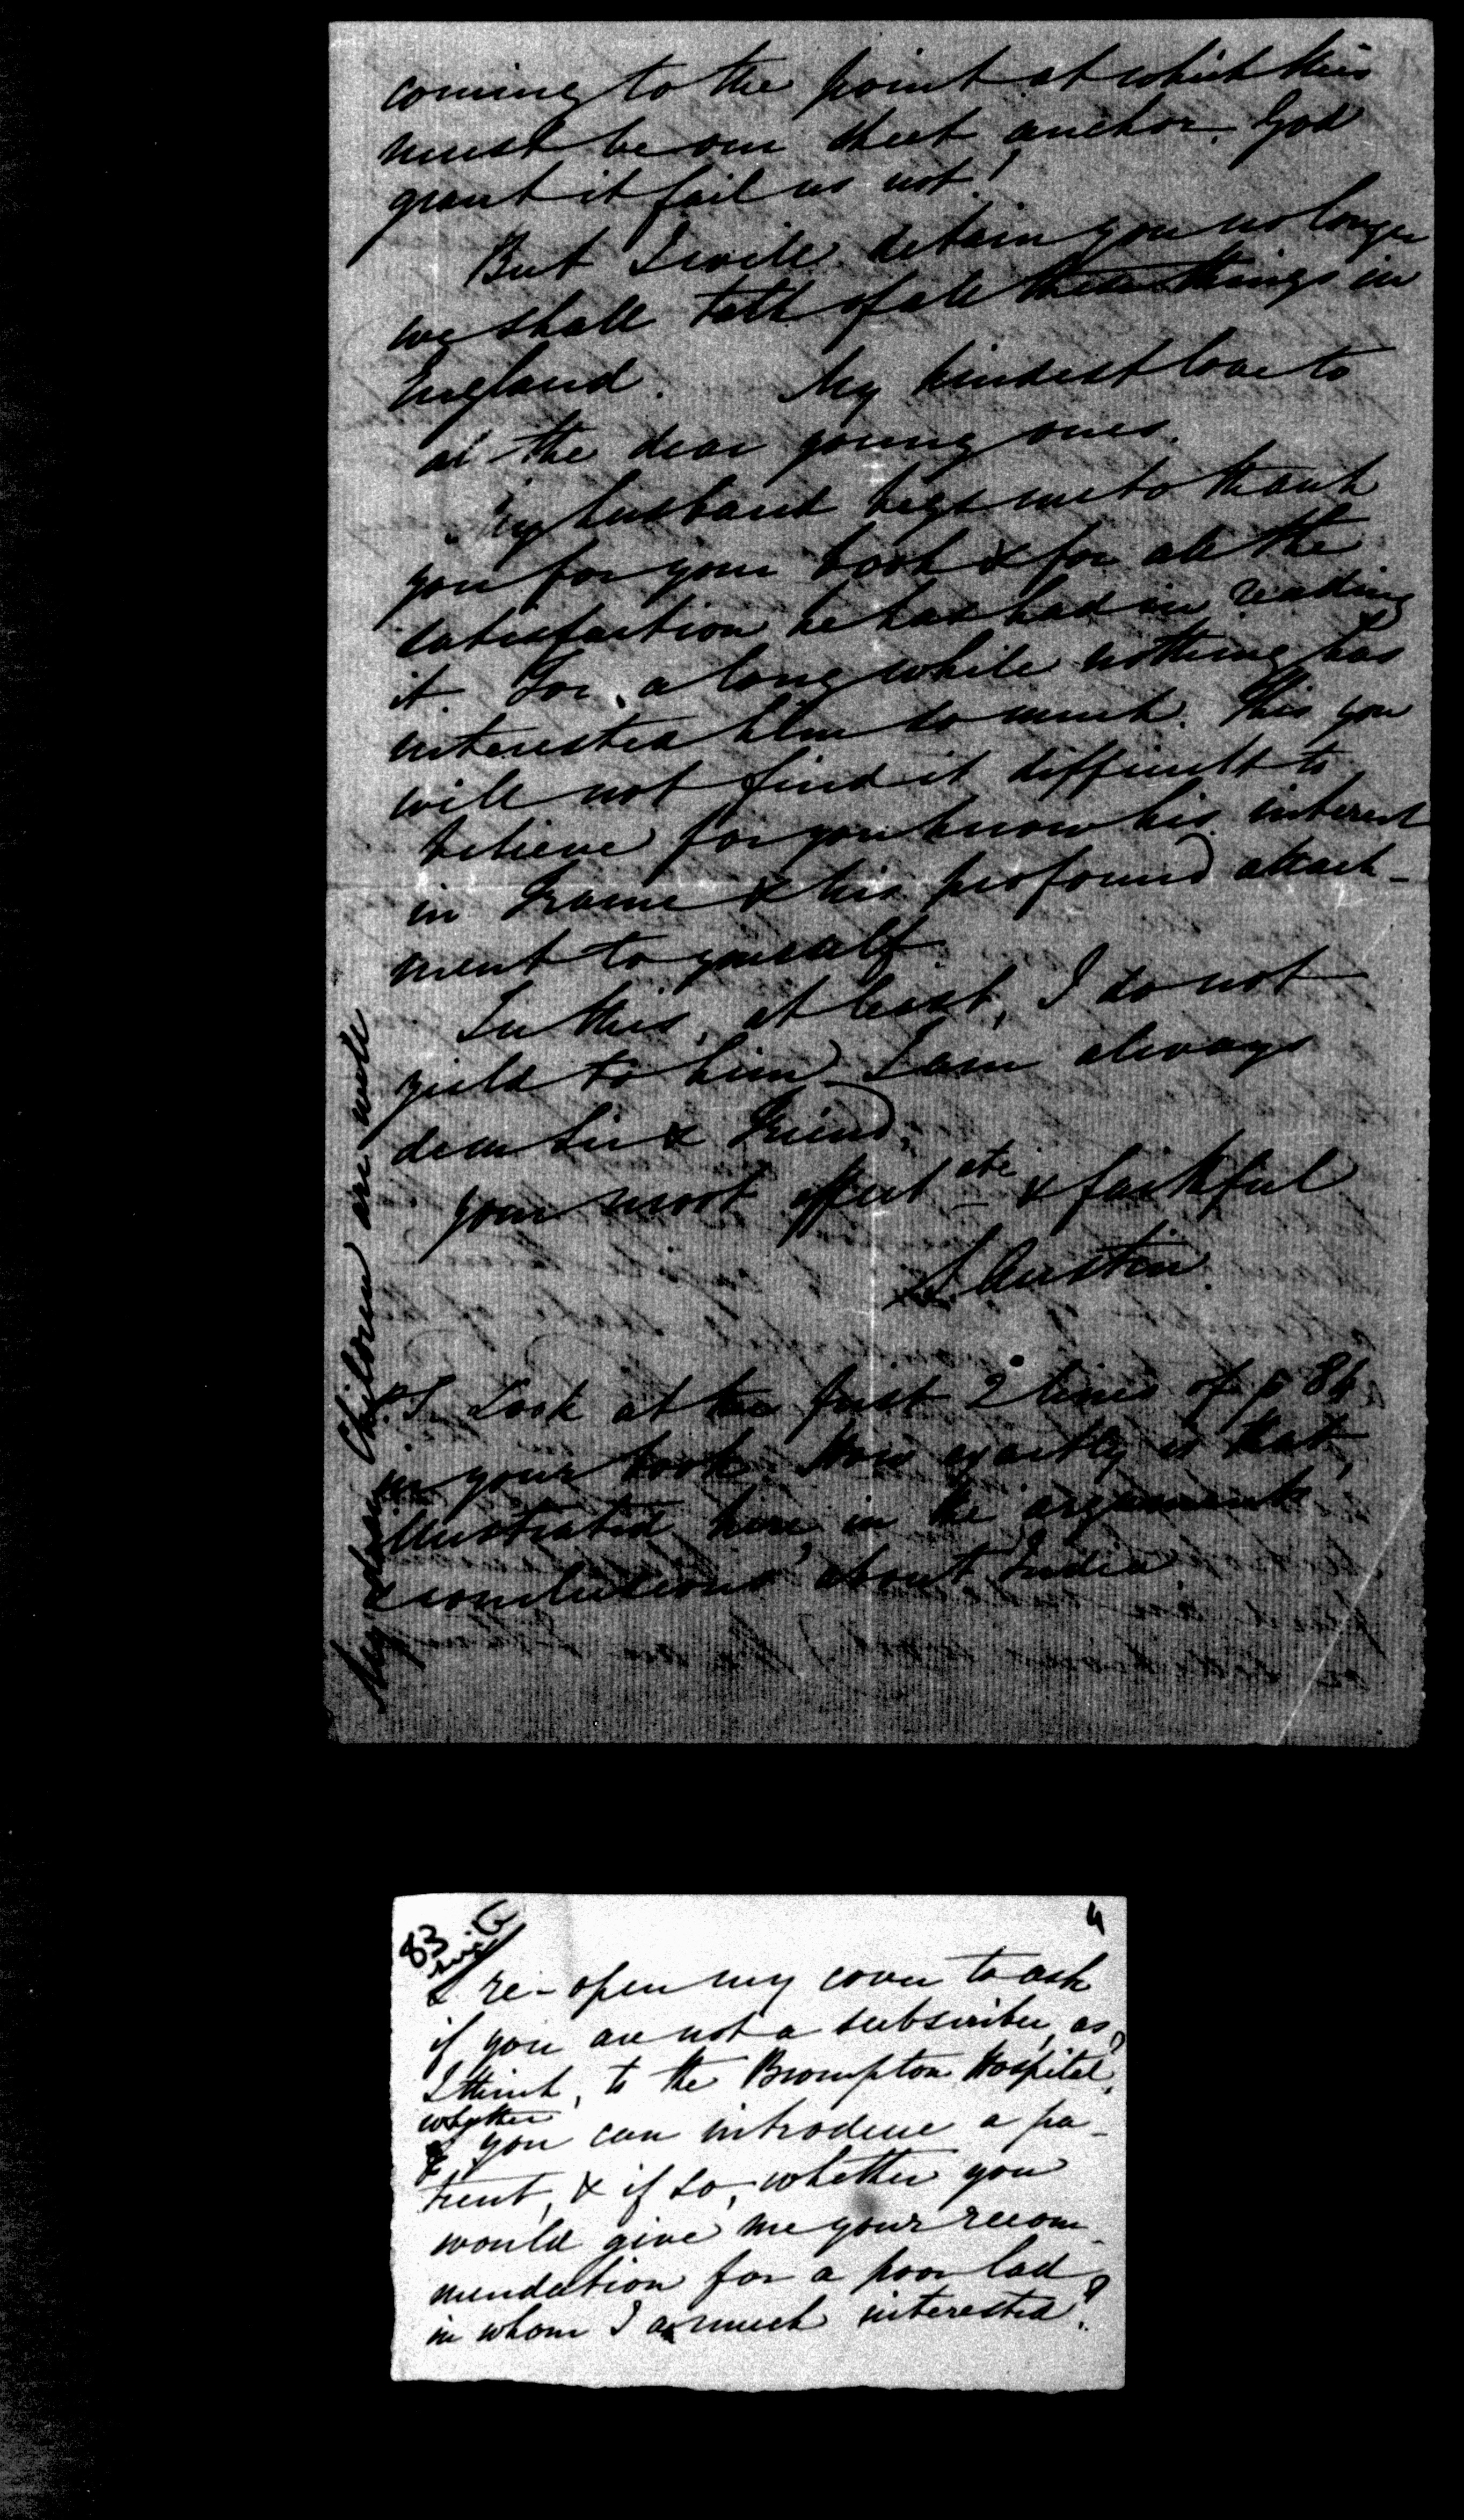 coming to the point at which this
must be our sheet anchor. God
grant it fail us not!
But I will detain you no longer
we shall talk of all these things in
England. My kindest love to
al the dear young ones.
My husband begs me to thank
you for your book & for all the
satisfaction he has had in reading
it. For a long while nothing has
interested him so much. This you
will not find it difficult to
believe for you know his interest
in France & his profound attach-
ment to yourself.
In this, at least, I do not
yield to him. I am always
dear Sir & Friend,
your most affectate & faithful
S. Austin.
P.S. Look at the first 2 lines of p 84
in your book. How exactly is that
illustrated here, in the arguments
& conclusions about India
My Children are well
83
4
I re-open my cover to ask
if you are not a subscriber, as
I think, to the Brompton Hospital,
whether
& you can introduce a pa-
tient, & if so, whether you
would give me your recom-
mendation for a poor lad
in whom I am much interested?